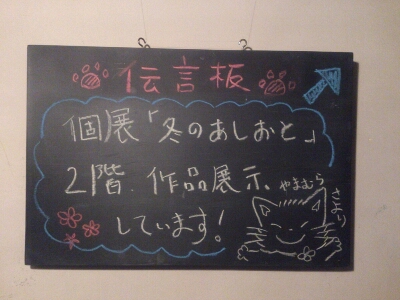 伝言板
個展「冬のあしおと」
2階 作品展示 やまむら
さより
しています!